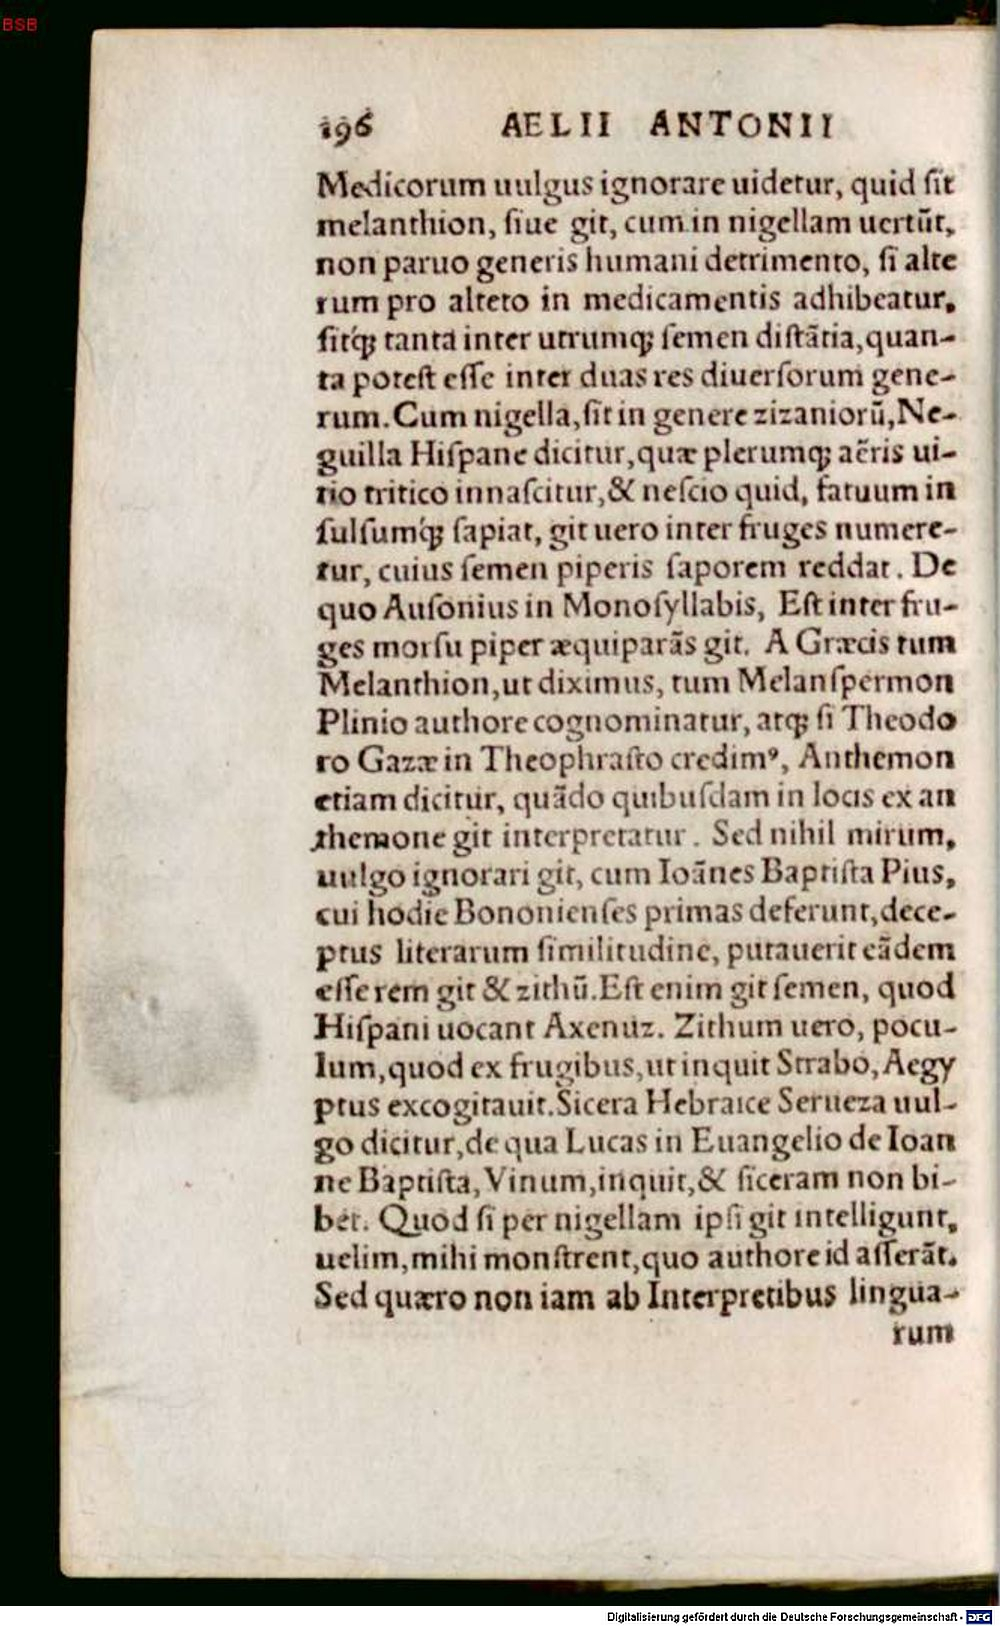 BSB
196 AELII ANTONII
Medicorum uulgus ignorare uidetur, quid ſit
melanthion, ſiue git, cum in nigellam uertūt,
non paruo generis humani detrimento, ſi alte
rum pro alteto in medicamentis adhibeatur,
ſitq́; tanta inter utrumq; ſemen diſtātia, quan-
ta poteſt eſſe inter duas res diuerſorum gene-
rum. Cum nigella, ſit in genere zizaniorū, Ne-
guilla Hiſpane dicitur, quæ plerumq; aëris ui-
tio tritico innaſcitur, & neſcio quid, fatuum in
ſulſumq́; ſapiat, git uero inter fruges numere-
tur, cuius ſemen piperis ſaporem reddat. De
quo Auſonius in Monoſyllabis, Eſt inter fru-
ges morſu piper æquiparās git. A Græcis tum
Melanthion, ut diximus, tum Melanſpermon
Plinio authore cognominatur, atq; ſi Theodo
ro Gazæ in Theophraſto credimꝰ, Anthemon
etiam dicitur, quādo quibuſdam in locis ex an
themone git interpretatur. Sed nihil mirum,
uulgo ignorari git, cum Ioānes Baptiſta Pius,
cui hodie Bononienſes primas deferunt, dece-
ptus literarum ſimilitudine, putauerit eādem
eſſe rem git & zithū. Eſt enim git ſemen, quod
Hiſpani uocant Axenuz. Zithum uero, pocu-
lum, quod ex frugibus, ut inquit Strabo, Aegy
ptus excogitauit. Sicera Hebraice Serueza uul-
go dicitur, de qua Lucas in Euangelio de Ioan
ne Baptiſta, Vinum, inquit, & ſiceram non bi-
bet. Quod ſi per nigellam ipſi git intelligunt,
uelim, mihi monſtrent, quo authore id aſſerāt.
Sed quæro non iam ab Interpretibus lingua-
rum
Digitalisierung gefördert durch die Deutsche Forschungsgemeinschaft - DFG